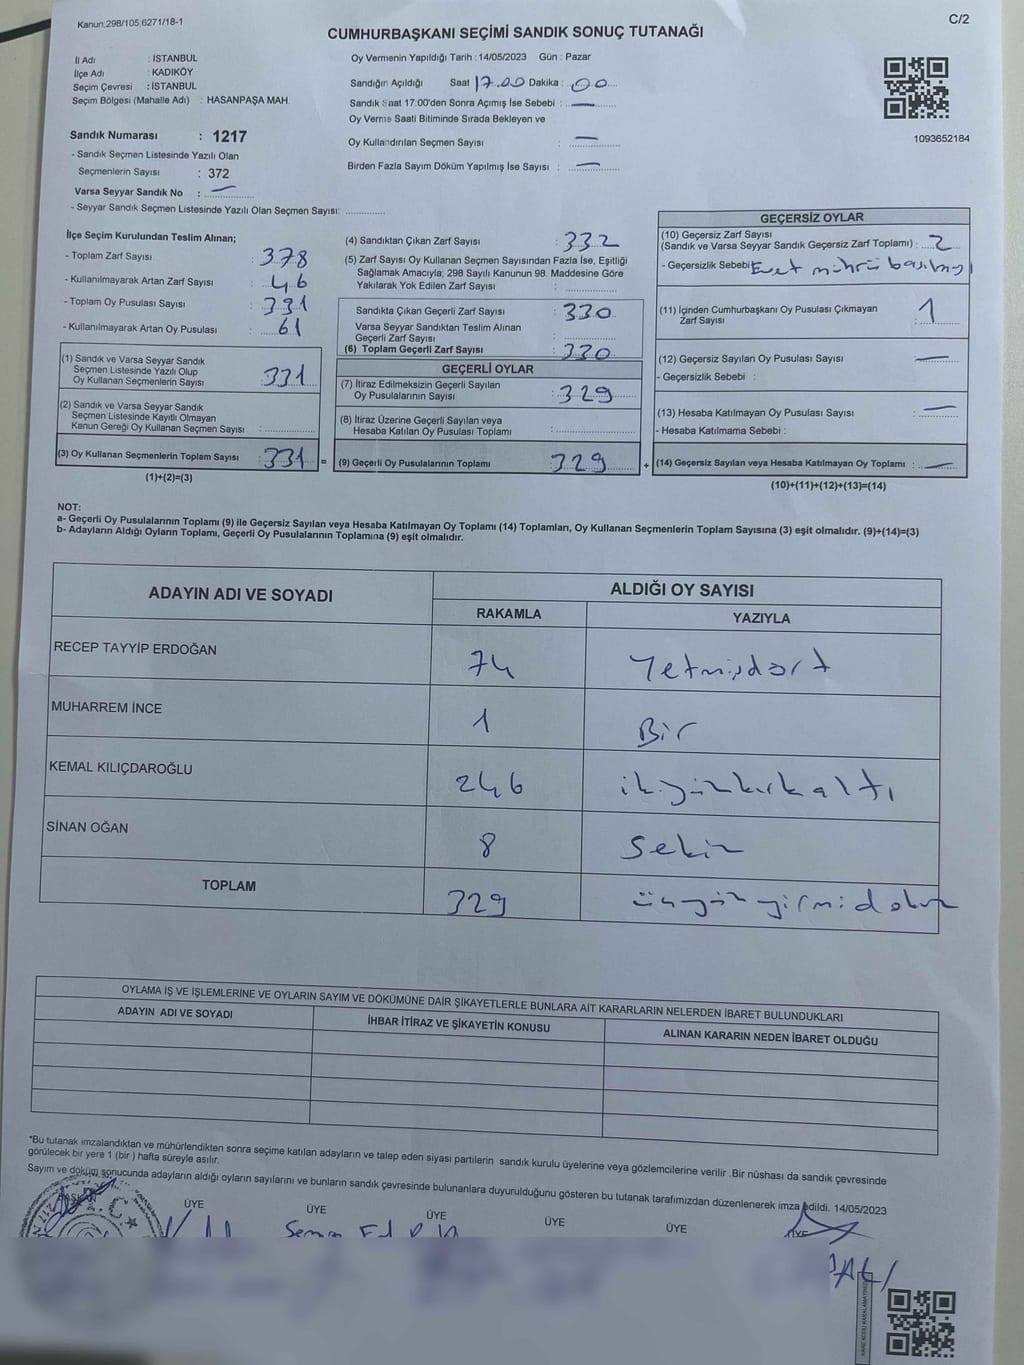 Kanun,298/105,6271/18-1
C/2
CUMHURBAŞKANI SEÇİMİ SANDIK SONUÇ TUTANAĞI
İl Adı : İSTANBUL
İlçe Adı : KADIKÖY
Seçim Çevresi : İSTANBUL
Seçim Bölgesi (Mahalle Adı) : HASANPAŞA MAH.
Sandık Numarası : 1217
- Sandık Seçmen Listesinde Yazılı Olan
Seçmenlerin Sayısı : 372
Varsa Seyyar Sandık No : —
- Seyyar Sandık Seçmen Listesinde Yazılı Olan Seçmen Sayısı:
Oy Vermenin Yapıldığı Tarih : 14/05/2023 Gün : Pazar
Sandığın Açıldığı Saat 17.00 Dakika : 00
Sandık Saat 17:00'den Sonra Açımış İse Sebebi : —
Oy Verme Saati Bitiminde Sırada Bekleyen ve
Oy Kullandırılan Seçmen Sayısı : —
Birden Fazla Sayım Döküm Yapılmış İse Sayısı : —
1093652184
İlçe Seçim Kurulundan Teslim Alınan;
- Toplam Zarf Sayısı : 378
- Kullanılmayarak Artan Zarf Sayısı : 46
- Toplam Oy Pusulası Sayısı : 391
- Kullanılmayarak Artan Oy Pusulası : 61
(1) Sandık ve Varsa Seyyar Sandık
Seçmen Listesinde Yazılı Olup
Oy Kullanan Seçmenlerin Sayısı 331
(2) Sandık ve Varsa Seyyar Sandık
Seçmen Listesinde Kayıtlı Olmayan
Kanun Gereği Oy Kullanan Seçmen Sayısı :
(3) Oy Kullanan Seçmenlerin Toplam Sayısı : 331 =
(1)+(2)=(3)
(4) Sandıktan Çıkan Zarf Sayısı : 332
(5) Zarf Sayısı Oy Kullanan Seçmen Sayısından Fazla İse, Eşitliği
Sağlamak Amacıyla; 298 Sayılı Kanunun 98. Maddesine Göre
Yakılarak Yok Edilen Zarf Sayısı :
Sandıkta Çıkan Geçerli Zarf Sayısı : 330
Varsa Seyyar Sandıktan Teslim Alınan
Geçerli Zarf Sayısı :
(6) Toplam Geçerli Zarf Sayısı : 330
GEÇERLİ OYLAR
(7) İtiraz Edilmeksizin Geçerli Sayılan
Oy Pusulalarının Sayısı : 329
(8) İtiraz Üzerine Geçerli Sayılan veya
Hesaba Katılan Oy Pusulası Toplamı :
(9) Geçerli Oy Pusulalarının Toplamı : 329 +
GEÇERSİZ OYLAR
(10) Geçersiz Zarf Sayısı
(Sandık ve Varsa Seyyar Sandık Geçersiz Zarf Toplamı) : 2
- Geçersizlik Sebebi : Evet mührü basılmış
(11) İçinden Cumhurbaşkanı Oy Pusulası Çıkmayan
Zarf Sayısı : 1
(12) Geçersiz Sayılan Oy Pusulası Sayısı : —
- Geçersizlik Sebebi :
(13) Hesaba Katılmayan Oy Pusulası Sayısı : —
- Hesaba Katılmama Sebebi :
(14) Geçersiz Sayılan veya Hesaba Katılmayan Oy Toplamı : —
(10)+(11)+(12)+(13)=(14)
NOT:
a- Geçerli Oy Pusulalarının Toplamı (9) ile Geçersiz Sayılan veya Hesaba Katılmayan Oy Toplamı (14) Toplamları, Oy Kullanan Seçmenlerin Toplam Sayısına (3) eşit olmalıdır. (9)+(14)=(3)
b- Adayların Aldığı Oyların Toplamı, Geçerli Oy Pusulalarının Toplamına (9) eşit olmalıdır.
ADAYIN ADI VE SOYADI
ALDIĞI OY SAYISI
RAKAMLA YAZIYLA
RECEP TAYYİP ERDOĞAN 74 Yetmişdört
MUHARREM İNCE 1 Bir
KEMAL KILIÇDAROĞLU 246 ikiyüzkırkaltı
SİNAN OĞAN 8 Sekiz
TOPLAM 329 üçyüzyirmidokuz
OYLAMA İŞ VE İŞLEMLERİNE VE OYLARIN SAYIM VE DÖKÜMÜNE DAİR ŞİKAYETLERLE BUNLARA AİT KARARLARIN NELERDEN İBARET BULUNDUKLARI
ADAYIN ADI VE SOYADI İHBAR İTİRAZ VE ŞİKAYETİN KONUSU ALINAN KARARIN NEDEN İBARET OLDUĞU
*Bu tutanak imzalandıktan ve mühürlendikten sonra seçime katılan adayların ve talep eden siyasi partilerin sandık kurulu üyelerine veya gözlemcilerine verilir .Bir nüshası da sandık çevresinde
görülecek bir yere 1 (bir ) hafta süreyle asılır.
Sayım ve döküm sonucunda adayların aldığı oyların sayılarını ve bunların sandık çevresinde bulunanlara duyurulduğunu gösteren bu tutanak tarafımızdan düzenlenerek imza edildi. 14/05/2023
BAŞKAN ÜYE ÜYE ÜYE ÜYE ÜYE ÜYE
T.C.